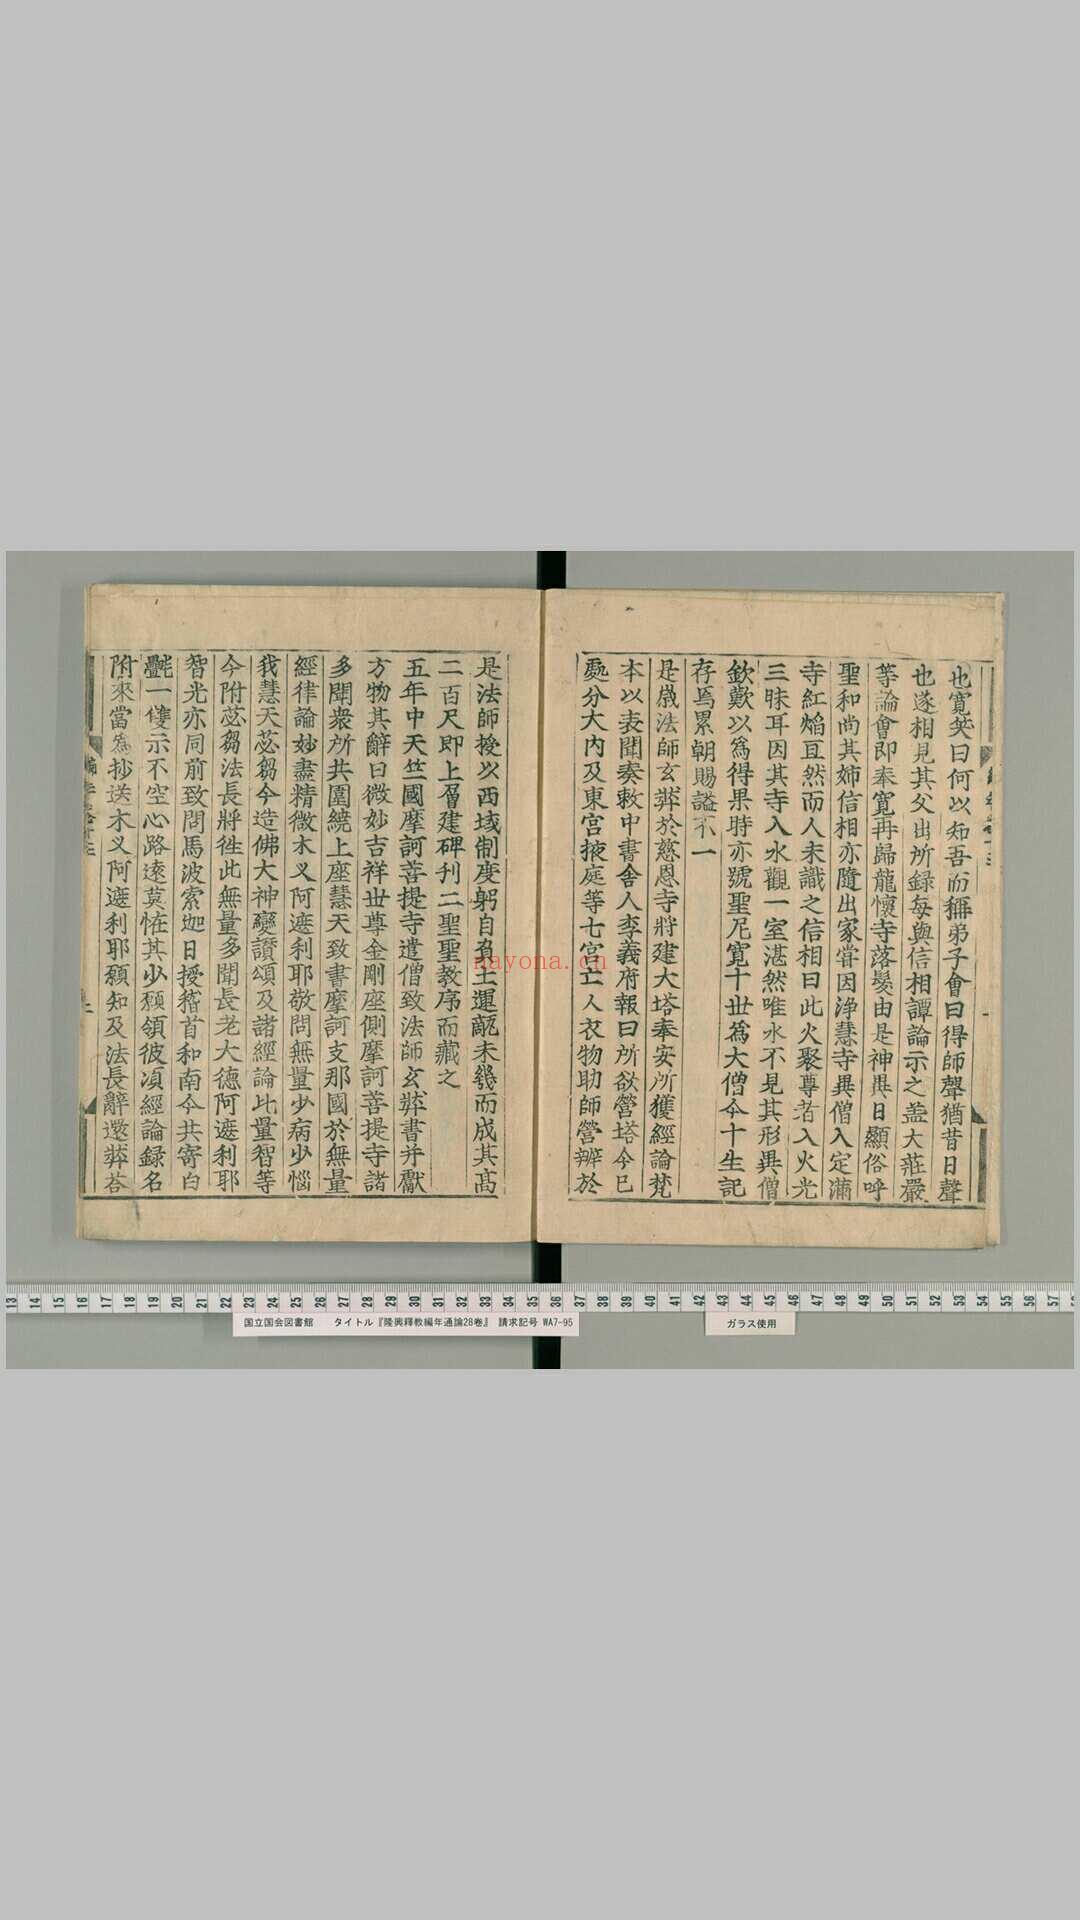 也寛笑曰何以知吾而稱弟子會曰得師聲猶昔日聲
也遂相見其父出所録每與信相譚論示之盖大莊嚴
等論會即奉寛再歸龍懷寺落髮由是神異日顯俗呼
聖和尚其姉信相亦隨出家甞因浄慧寺異僧入定滿
寺紅焰亘然而人未識之信相曰此火聚尊者入火光
三昧耳因其寺入水觀一室湛然唯水不見其形異僧
欽歎以爲得果時亦號聖尼寛十世爲大僧今十生記
存焉累朝賜謚不一
是歳法師玄弉於慈恩寺將建大塔奉安所獲經論梵
本以表聞奏敕中書舍人李義府報曰所欲營塔今已
處分大内及東宮掖庭等七宮亡人衣物助師營辨於
是法師授以西域制度躬自負土運甎未幾而成其髙
二百尺即上層建碑刊二聖聖教序而藏之
五年中天竺國摩訶菩提寺遣僧致法師玄弉書并獻
方物其辭曰微妙吉祥世尊金剛座側摩訶菩提寺諸
多聞衆所共圍繞上座慧天致書摩訶支那國於無量
經律論妙盡精微木义阿遮利耶敬問無量少病少惱
我慧天苾芻今造佛大神變讃頌及諸經論比量智等
今附苾芻法長將徃此無量多聞長老大德阿遮利耶
智光亦同前致問馬波索迦日授稽首和南今共寄白
㲲一雙示不空心路遠莫怪其少願領彼湏經論録名
附來當爲抄送木义阿遮利耶願知及法長辭還弉荅
nayona.cn
13 14 15 16 17 18 19 20 21 22 23 24 25 26 27 28 29 30 31 32 33 34 35 36 37 38 39 40 41 42 43 44 45 46 47 48 49 50 51 52 53 54 55 56 57
国立国会図書館 タイトル『隆興釋教編年通論28巻』 請求記号 WA7-95
ガラス使用